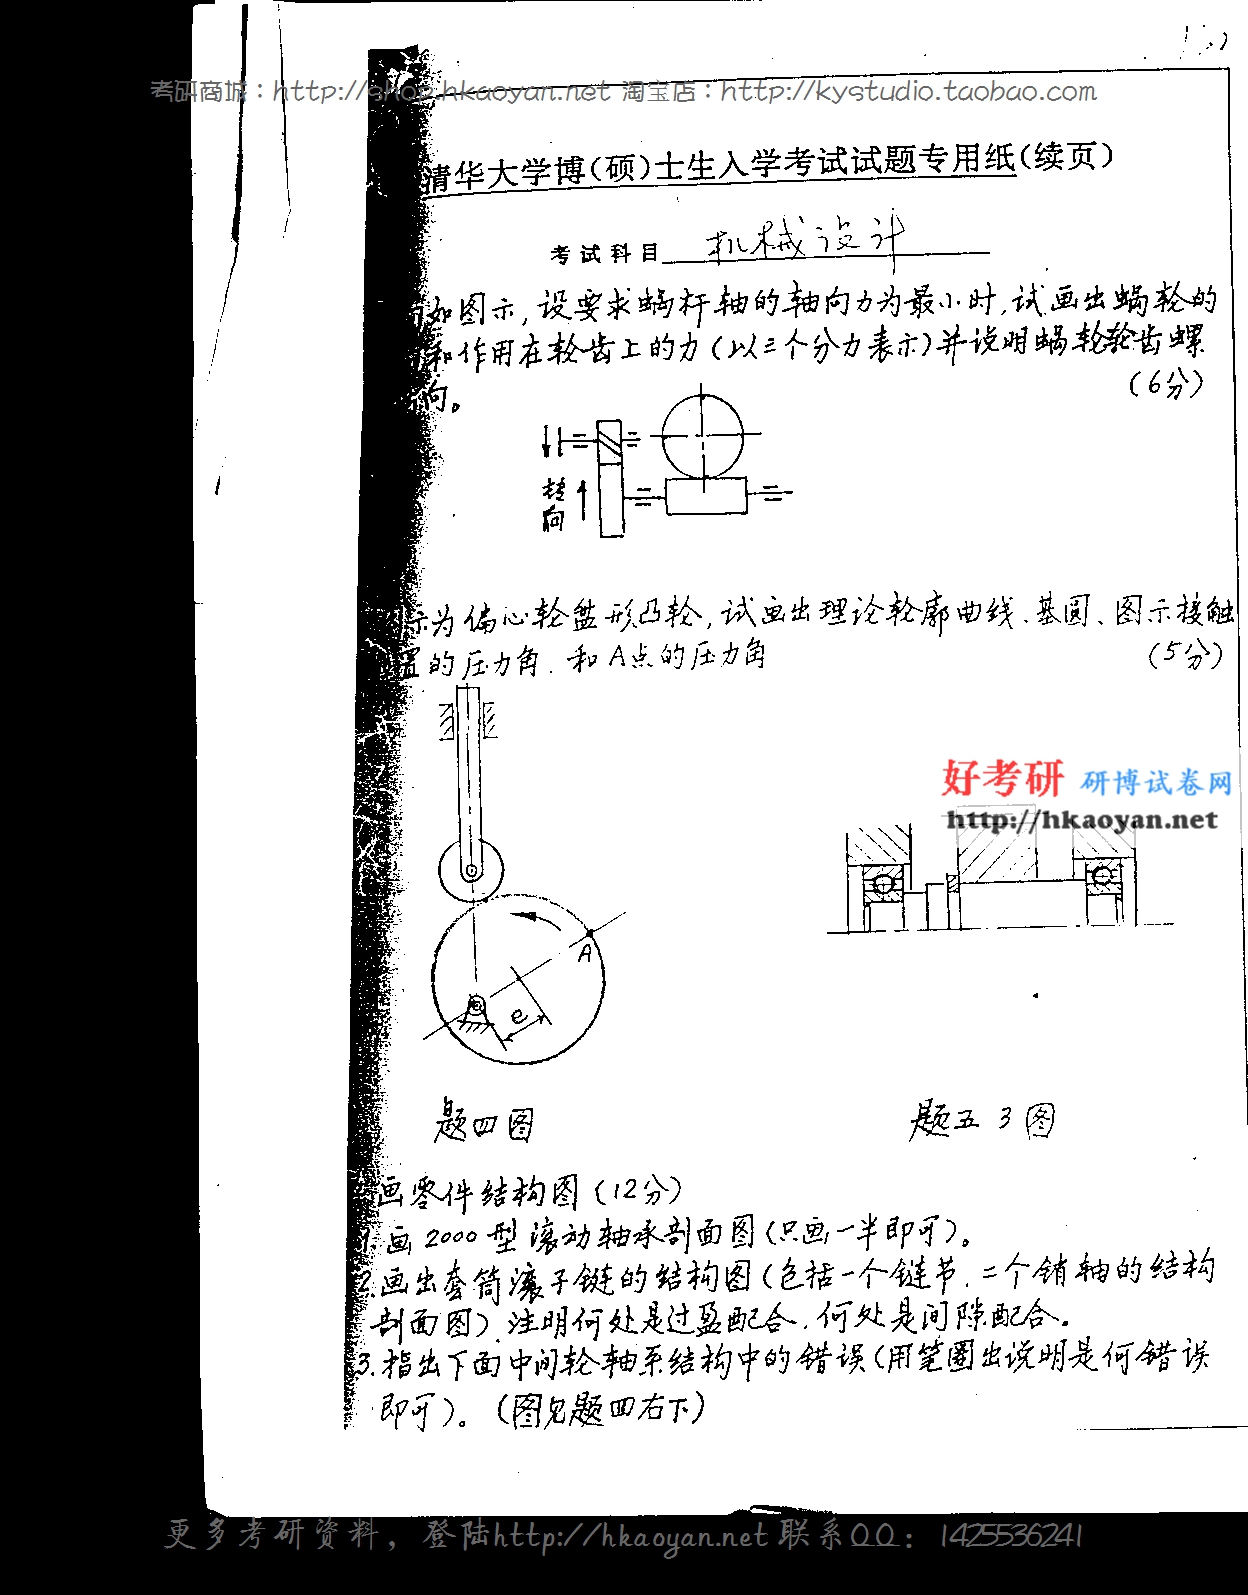 考研商城：http://shop.hkaoyan.net 淘宝店：http://kystudio.taobao.com
清华大学博(硕)士生入学考试试题专用纸(续页)
考试科目 机械设计
如图示,设要求蜗杆轴的轴向力为最小时,试画出蜗轮的
和作用在轮齿上的力(以三个分力表示)并说明蜗轮轮齿螺
向。 (6分)
转向
示为偏心轮盘形凸轮,试画出理论轮廓曲线、基圆、图示接触
置的压力角.和A点的压力角 (5分)
好考研 研博试卷网
http://hkaoyan.net
A
e
题四图 题五 3图
画零件结构图(12分)
1.画2000型滚动轴承剖面图(只画一半即可)。
2.画出套筒滚子链的结构图(包括一个链节.二个销轴的结构
剖面图).注明何处是过盈配合.何处是间隙配合。
3.指出下面中间轮轴系结构中的错误(用笔圈出说明是何错误
即可)。(图见题四右下)
更多考研资料，登陆http://hkaoyan.net 联系QQ：1425536241